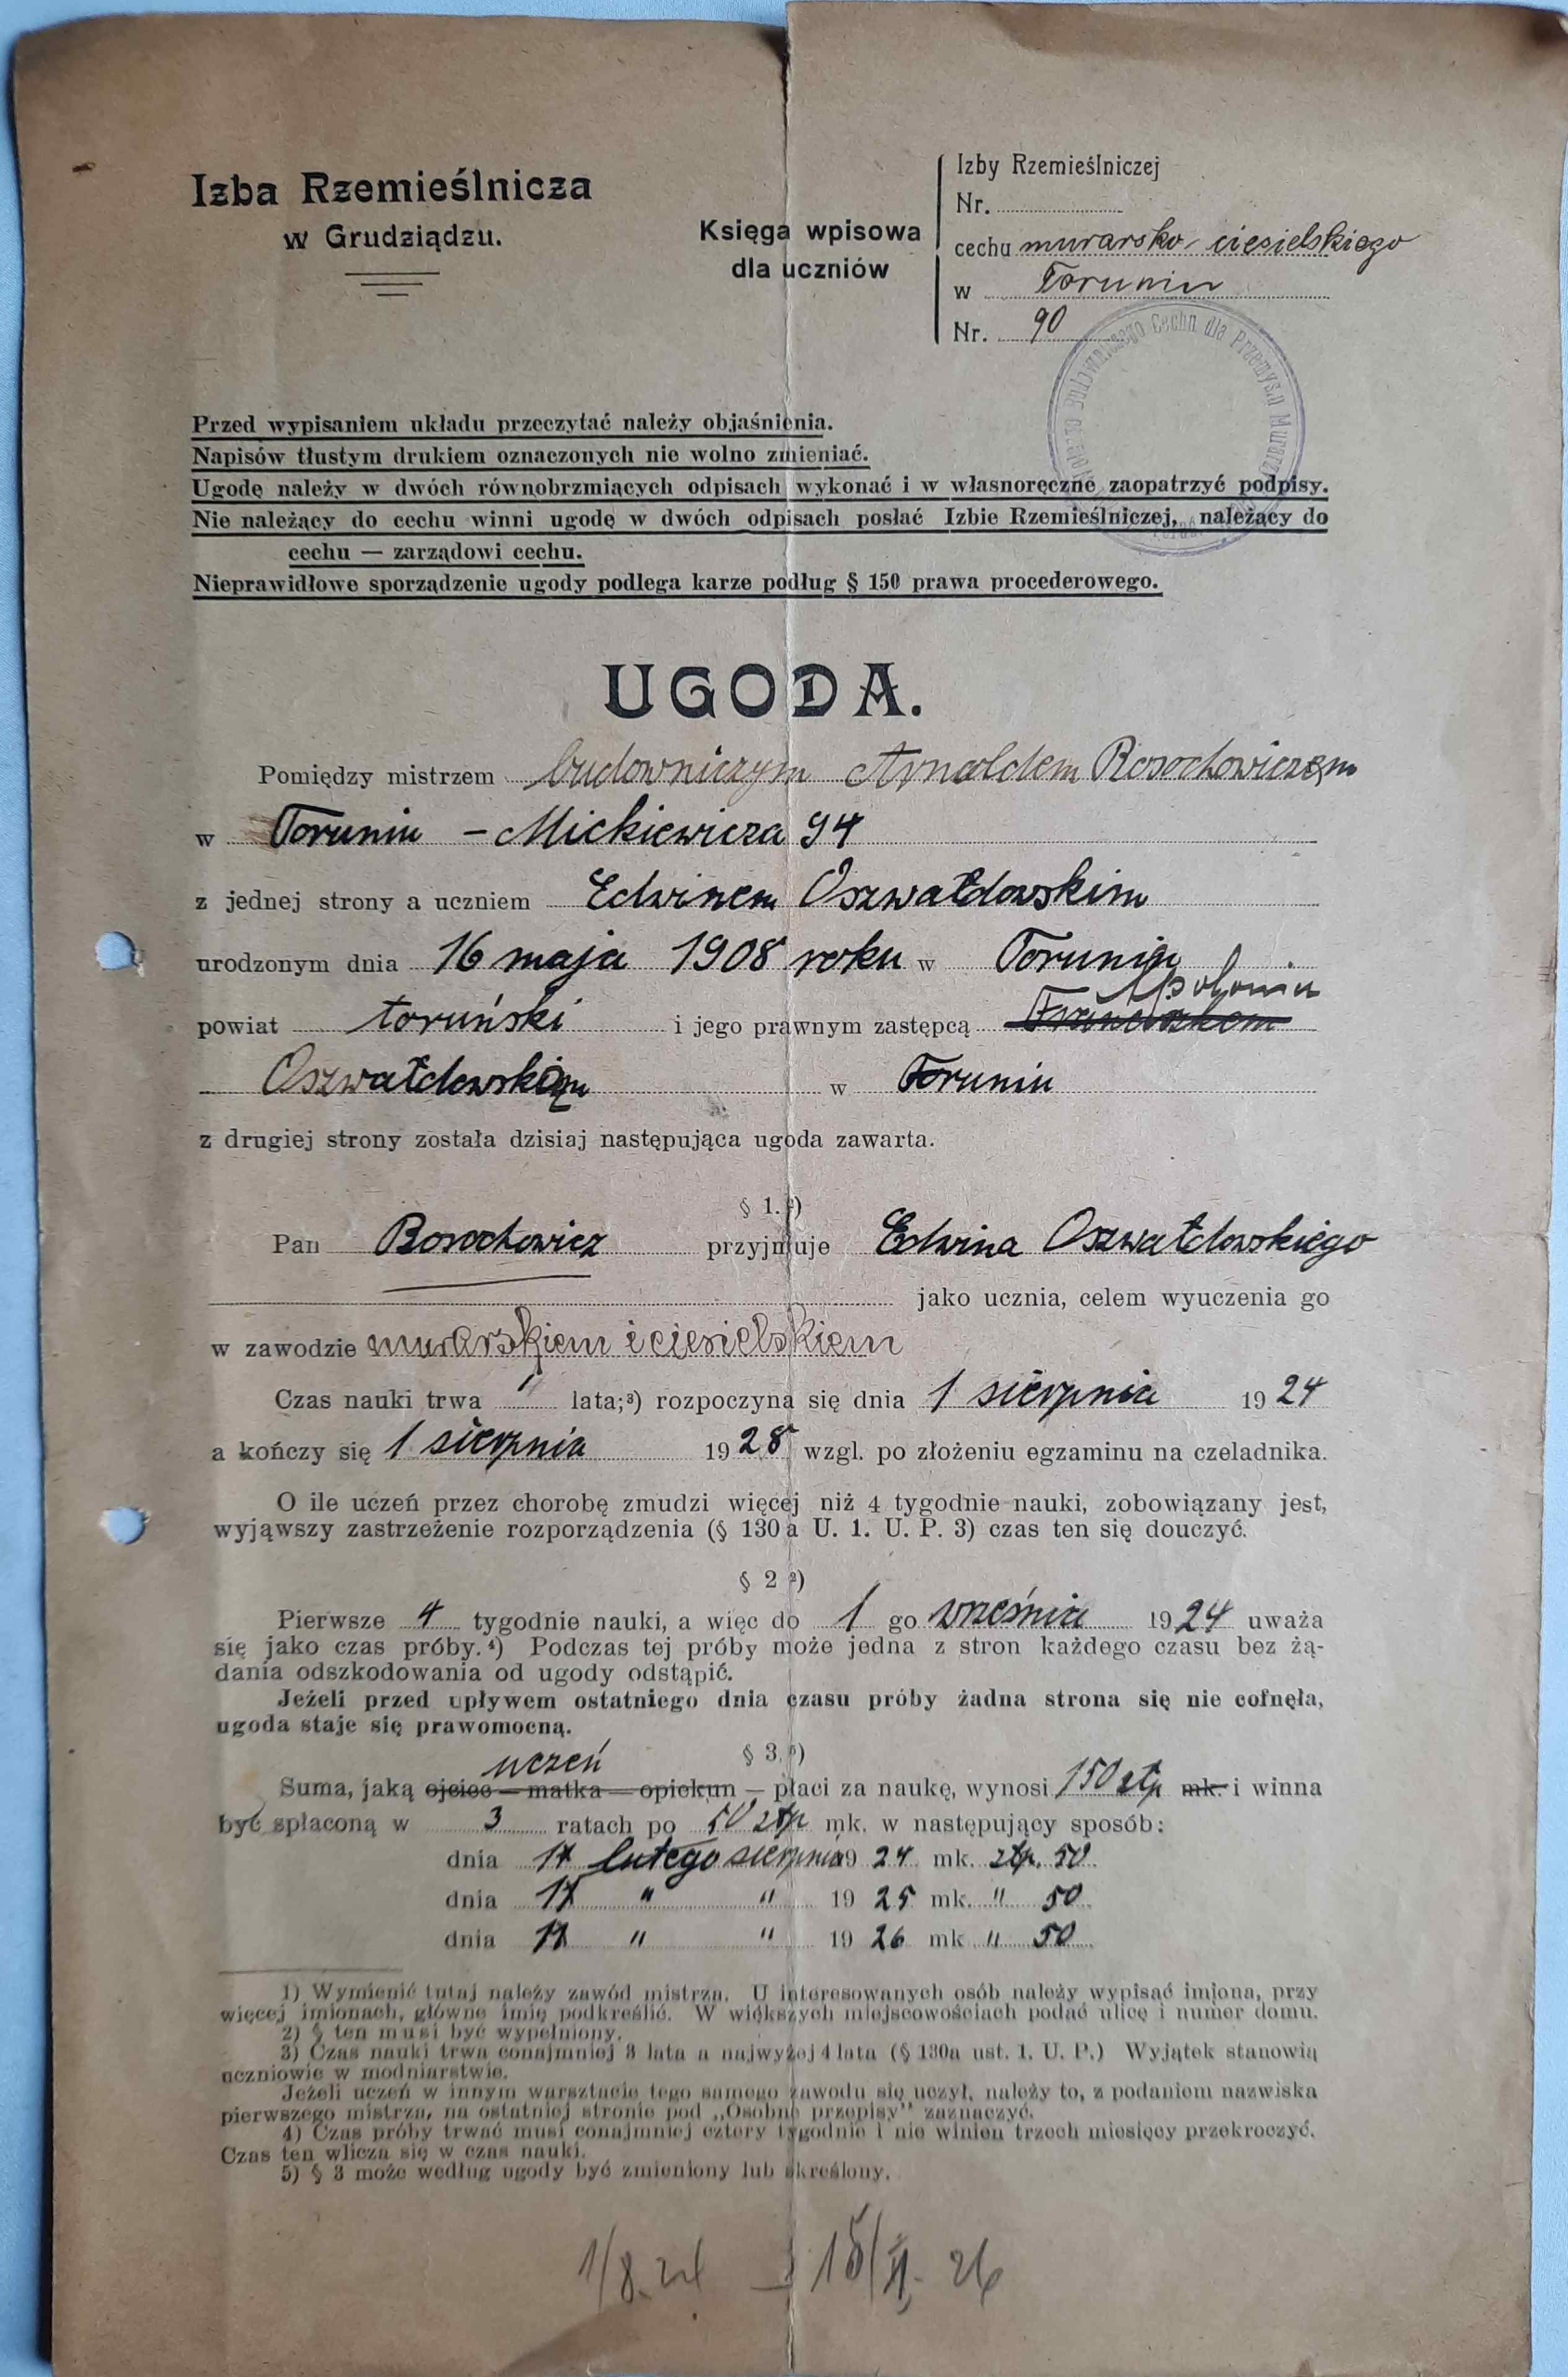 Izba Rzemieślnicza
w Grudziądzu.
Księga wpisowa
dla uczniów
Izby Rzemieślniczej
Nr.
cechu murarsko-ciesielskiego
w Toruniu
Nr. 90
Cechu dla Przemysłu
Przed wypisaniem układu przeczytać należy objaśnienia.
Napisów tłustym drukiem oznaczonych nie wolno zmieniać.
Ugodę należy w dwóch równobrzmiących odpisach wykonać i w własnoręczne zaopatrzyć podpisy.
Nie należący do cechu winni ugodę w dwóch odpisach posłać Izbie Rzemieślniczej, należący do
cechu — zarządowi cechu.
Nieprawidłowe sporządzenie ugody podlega karze podług § 150 prawa procederowego.
UGODA.
Pomiędzy mistrzem budowniczym Arnoldem Rosochowiczem
w Toruniu - Mickiewicza 94
z jednej strony a uczniem Edwinem Oszwałdowskim
urodzonym dnia 16 maja 1908 roku w Toruniu
powiat toruński i jego prawnym zastępcą Franciszkem
Oszwałdowską w Toruniu
z drugiej strony została dzisiaj następująca ugoda zawarta.
§ 1.²)
Pan Rosochowicz przyjmuje Edwina Oszwałdowskiego
jako ucznia, celem wyuczenia go
w zawodzie murarskiem i ciesielskiem
Czas nauki trwa lata;³) rozpoczyna się dnia 1 sierpnia 1924
a kończy się 1 sierpnia 1928 wzgl. po złożeniu egzaminu na czeladnika.
O ile uczeń przez chorobę zmudzi więcej niż 4 tygodnie nauki, zobowiązany jest,
wyjąwszy zastrzeżenie rozporządzenia (§ 130 a U. 1. U. P. 3) czas ten się douczyć.
§ 2 ²)
Pierwsze 4 tygodnie nauki, a więc do 1 go września 1924 uważa
się jako czas próby.⁴) Podczas tej próby może jedna z stron każdego czasu bez żą-
dania odszkodowania od ugody odstąpić.
Jeżeli przed upływem ostatniego dnia czasu próby żadna strona się nie cofnęła,
ugoda staje się prawomocną.
§ 3.⁵)
uczeń
Suma, jaką ojciec — matka — opiekun — płaci za naukę, wynosi 150 złp mk. i winna
być spłaconą w 3 ratach po 50 złp mk. w następujący sposób:
dnia 1 lutego sierpnia 19 24 mk. złp. 50
dnia 1 " " 19 25 mk. " 50
dnia 1 " " 19 26 mk " 50
1) Wymienić tutaj należy zawód mistrza. U interesowanych osób należy wypisać imiona, przy
więcej imionach, główne imię podkreślić. W większych miejscowościach podać ulicę i numer domu.
2) § ten musi być wypełniony.
3) Czas nauki trwa conajmniej 3 lata a najwyżej 4 lata (§ 130a ust. 1. U. P.) Wyjątek stanowią
uczniowie w modniarstwie.
Jeżeli uczeń w innym warsztacie tego samego zawodu się uczył, należy to, z podaniem nazwiska
pierwszego mistrza, na ostatniej stronie pod „Osobne przepisy" zaznaczyć.
4) Czas próby trwać musi conajmniej cztery tygodnie i nie winien trzech miesięcy przekroczyć.
Czas ten wlicza się w czas nauki.
5) § 3 może według ugody być zmieniony lub skreślony.
1/8.24 — 15/II. 26